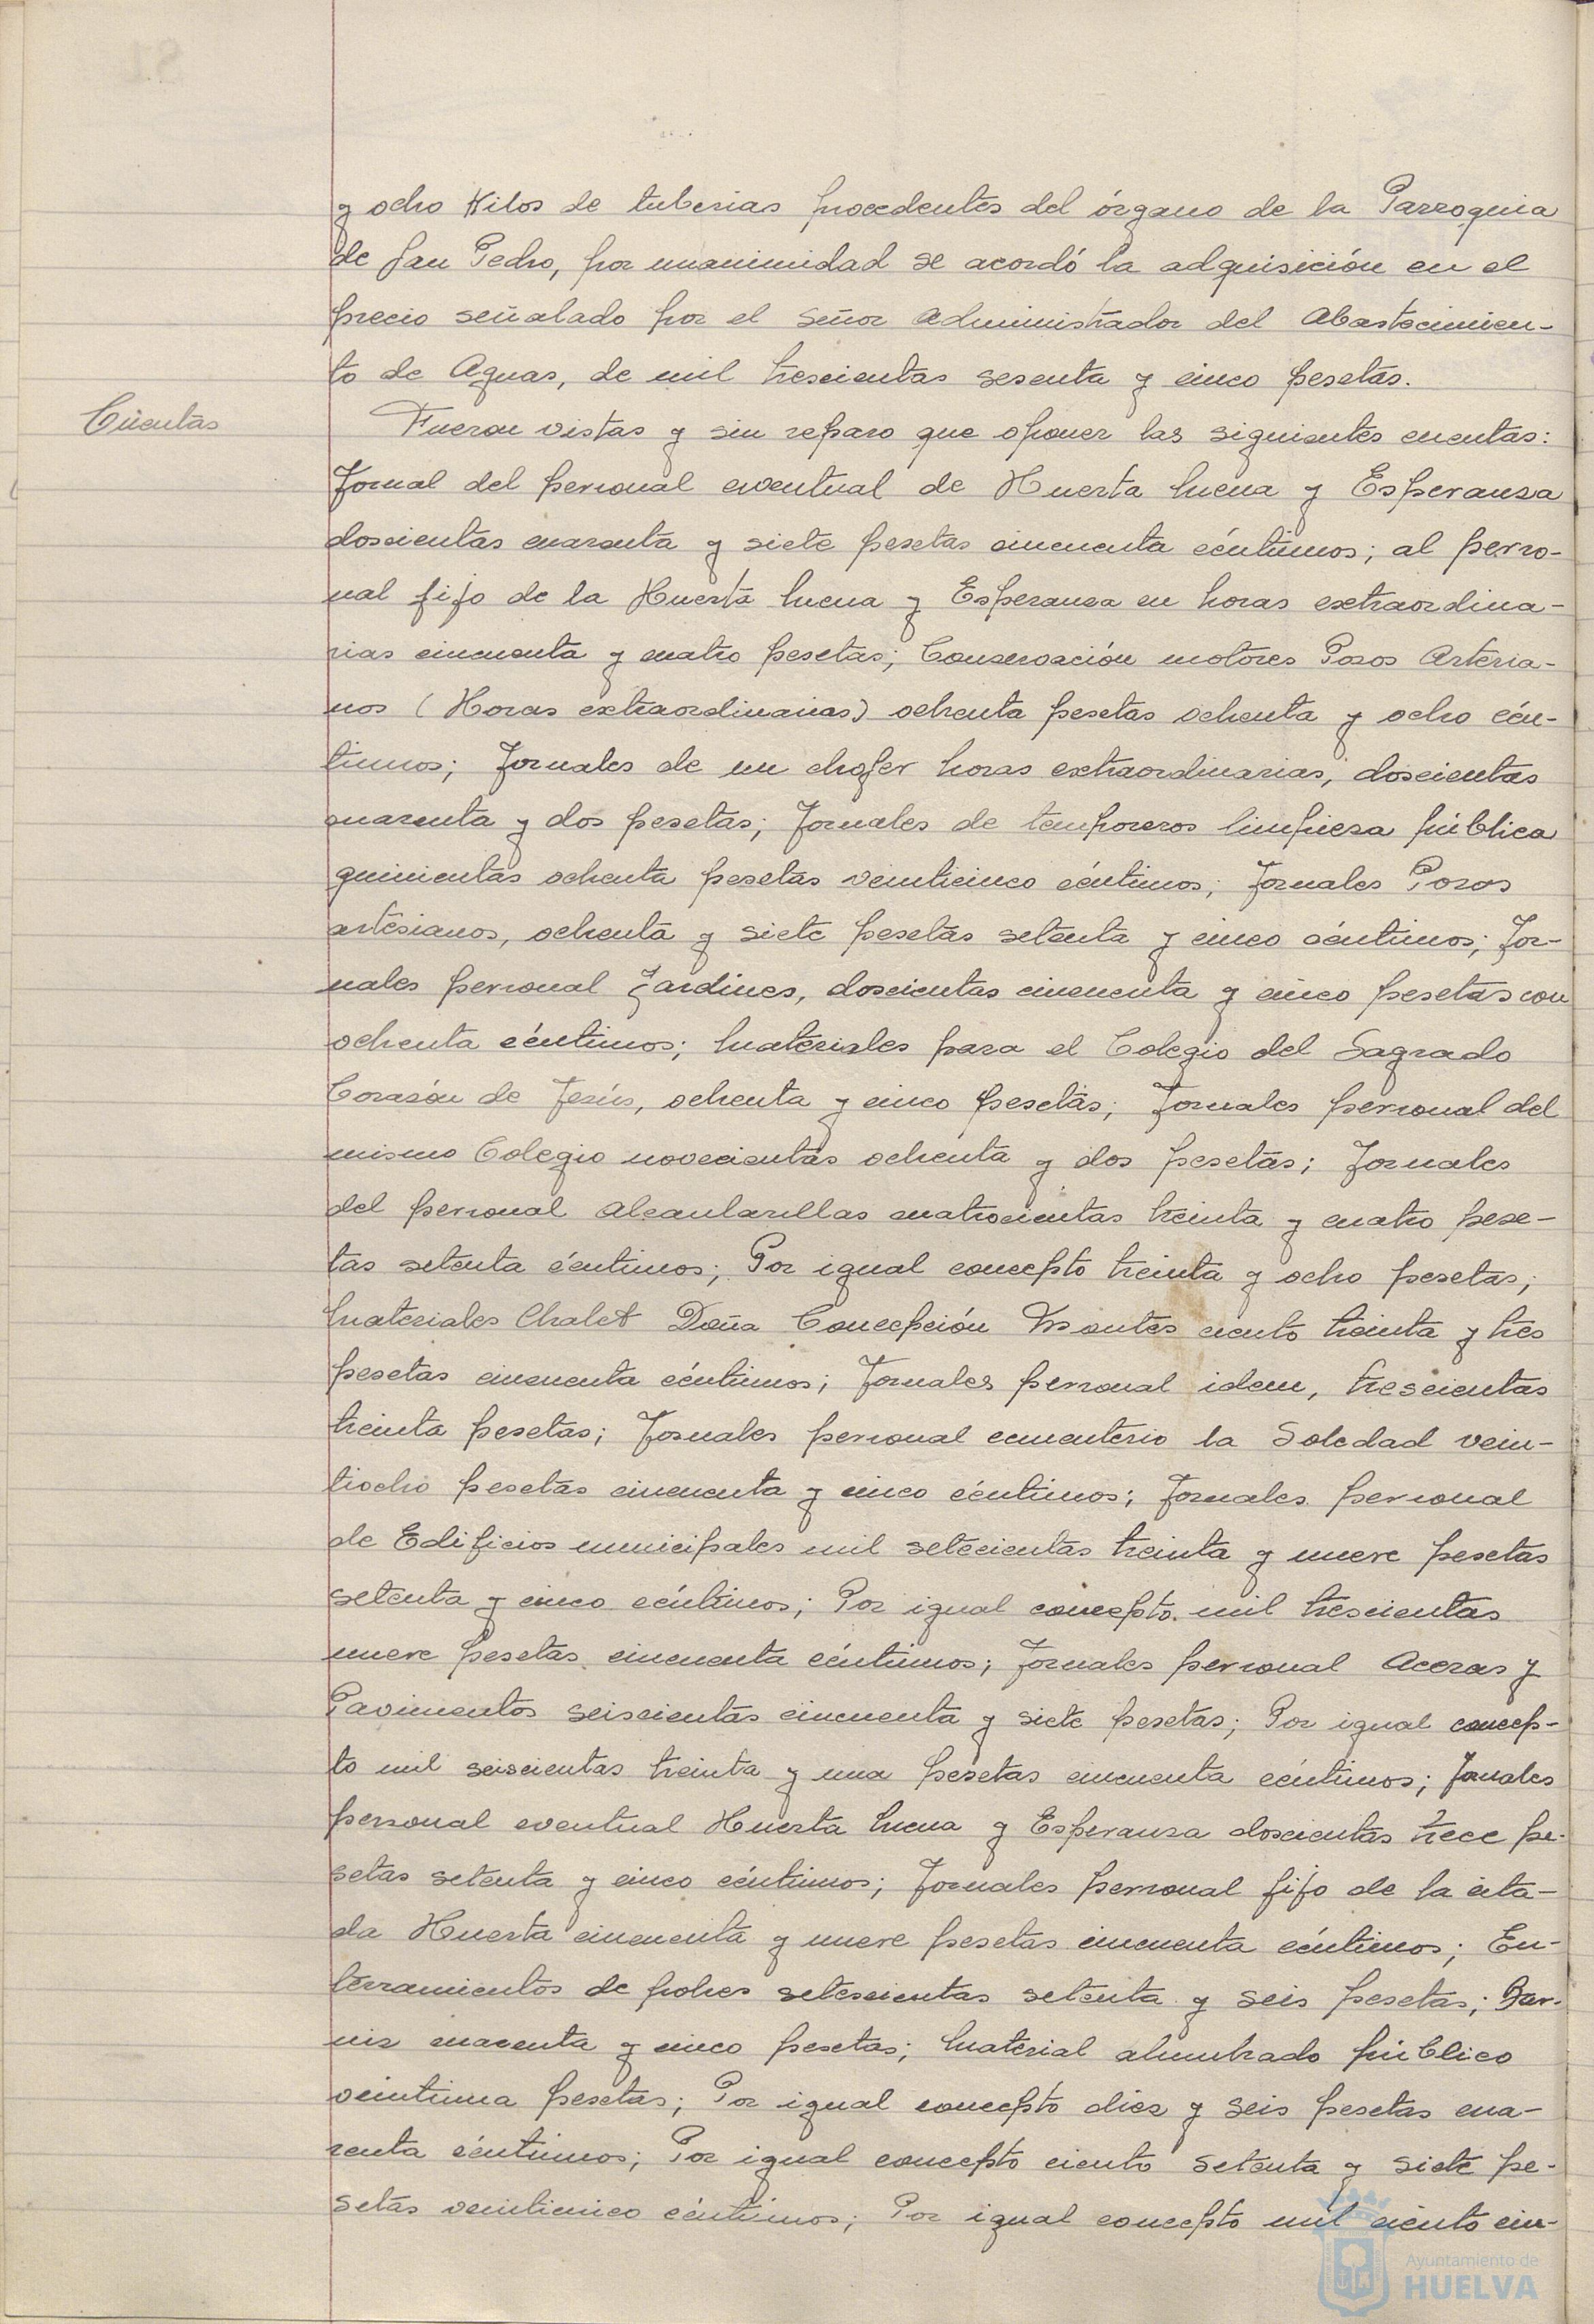 y ocho Kilos de tuberias procedentes del órgano de la Parroquia
de San Pedro, por unanimidad se acordó la adquisición en el
precio señalado por el Señor Administrador del Abastecimien-
to de Aguas, de mil trescientas sesenta y cinco pesetas.
Cuentas
Fueron vistas y sin reparo que oponer las siguientes cuentas:
Jornal del personal eventual de Huerta Mena y Esperanza
doscientas cuarenta y siete pesetas cincuenta céntimos; al perso-
nal fijo de la Huerta Mena y Esperanza en horas extraordina-
rias cincuenta y cuatro pesetas; Conservación motores Pozos Artesia-
nos (Horas extraordinarias) ochenta pesetas ochenta y ocho cén-
timos; Jornales de un chofer horas extraordinarias, doscientas
cuarenta y dos pesetas; Jornales de temporeros limpieza pública
quinientas ochenta pesetas veinticinco céntimos; Jornales Pozos
artesianos, ochenta y siete pesetas setenta y cinco céntimos; Jor-
nales personal Jardines, doscientas cincuenta y cinco pesetas con
ochenta céntimos; Materiales para el Colegio del Sagrado
Corazón de Jesús, ochenta y cinco pesetas; Jornales personal del
mismo Colegio novecientas ochenta y dos pesetas; Jornales
del personal Alcantarillas cuatrocientas treinta y cuatro pese-
tas setenta céntimos; Por igual concepto treinta y ocho pesetas;
Materiales Chalet Doña Concepción Montes ciento treinta y tres
pesetas cincuenta céntimos; Jornales personal idem, trescientas
treinta pesetas; Jornales personal cementerio la Soledad vein-
tiocho pesetas cincuenta y cinco céntimos; Jornales personal
de Edificios municipales mil setecientas treinta y nueve pesetas
setenta y cinco céntimos; Por igual concepto mil trescientas
nueve pesetas cincuenta céntimos; Jornales personal Aceras y
Pavimentos seiscientas cincuenta y siete pesetas; Por igual concep-
to mil seiscientas treinta y una pesetas cincuenta céntimos; Jonales
personal eventual Huerta Mena y Esperanza doscientas trece pe-
setas setenta y cinco céntimos; Jornales personal fijo de la cita-
da Huerta cincuenta y nueve pesetas cincuenta céntimos; En-
terramientos de pobres setescientas setenta y seis pesetas; Bar-
niz cuarenta y cinco pesetas; Material alumbrado público
veintiuna pesetas; Por igual concepto diez y seis pesetas cua-
renta céntimos; Por igual concepto ciento setenta y siete pe-
setas veinticinco céntimos; Por igual concepto mil ciento cin-
Ayuntamiento de
HUELVA